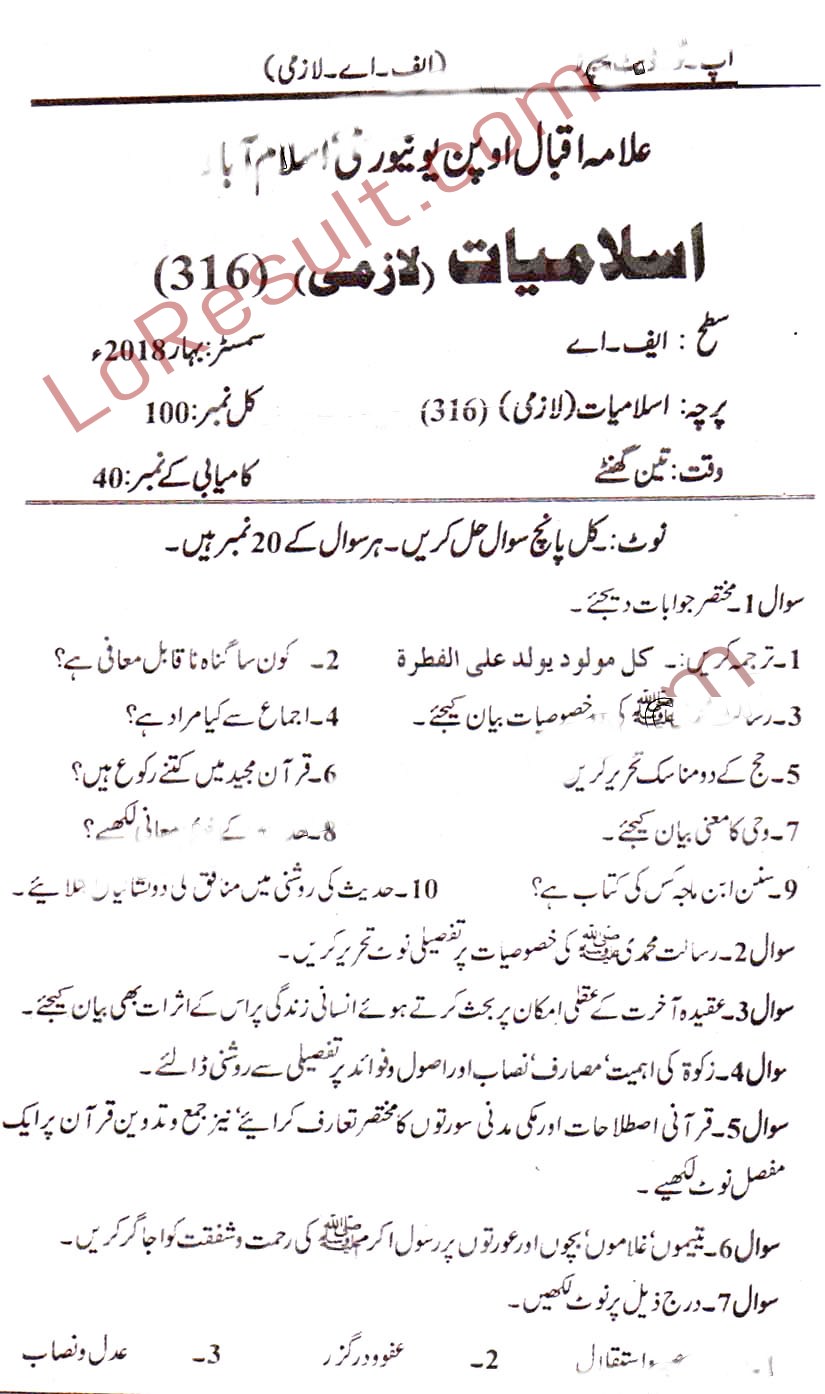 (الف۔اے۔لازمی)
علامہ اقبال اوپن یونیورٹی‘ اسلام آباد
اسلامیات (لازمی) (316)
سطح: ایف۔اے سمسٹر: بہار 2018ء
پرچہ: اسلامیات (لازمی) (316) کل نمبر: 100
وقت: تین گھنٹے کامیابی کے نمبر: 40
نوٹ:۔ کل پانچ سوال حل کریں۔ ہر سوال کے 20 نمبر ہیں۔
سوال 1۔ مختصر جوابات دیجئے۔
1۔ ترجمہ کریں:۔ کل مولود يولد على الفطرة 2۔ کون سا گناہ ناقابل معافی ہے؟
3۔ رسالت ﷺ کی خصوصیات بیان کیجئے۔ 4۔ اجماع سے کیا مراد ہے؟
5۔ حج کے دو مناسک تحریر کریں 6۔ قرآن مجید میں کتنے رکوع ہیں؟
7۔ وحی کا معنی بیان کیجئے۔ 8۔ کے معانی لکھیے؟
9۔ سنن ابن ماجہ کس کی کتاب ہے؟ 10۔ حدیث کی روشنی میں منافق کی دو نشانیاں بتلائیے۔
سوال 2۔ رسالت محمدی ﷺ کی خصوصیات پر تفصیلی نوٹ تحریر کریں۔
سوال 3۔ عقیدہ آخرت کے عقلی امکان پر بحث کرتے ہوئے انسانی زندگی پر اس کے اثرات بھی بیان کیجئے۔
سوال 4۔ زکوۃ کی اہمیت‘ مصارف‘ نصاب اور اصول و فوائد پر تفصیلی سے روشنی ڈالئے۔
سوال 5۔ قرآنی اصطلاحات اور مکی مدنی سورتوں کا مختصر تعارف کرائیے‘ نیز جمع و تدوین قرآن پر ایک
مفصل نوٹ لکھیے۔
سوال 6۔ یتیموں‘ غلاموں‘ بچوں اور عورتوں پر رسول اکرم ﷺ کی رحمت و شفقت کو اجاگر کریں۔
سوال 7۔ درج ذیل پر نوٹ لکھیں۔
1۔ صبر و استقلال 2۔ عفو و درگزر 3۔ عدل و نصاب
LoResult.com